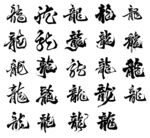 龍龍龍龍龍
龍龍龍龍龍
龍龍龍龍龍
龍龍龍龍龍
龍龍龍龍